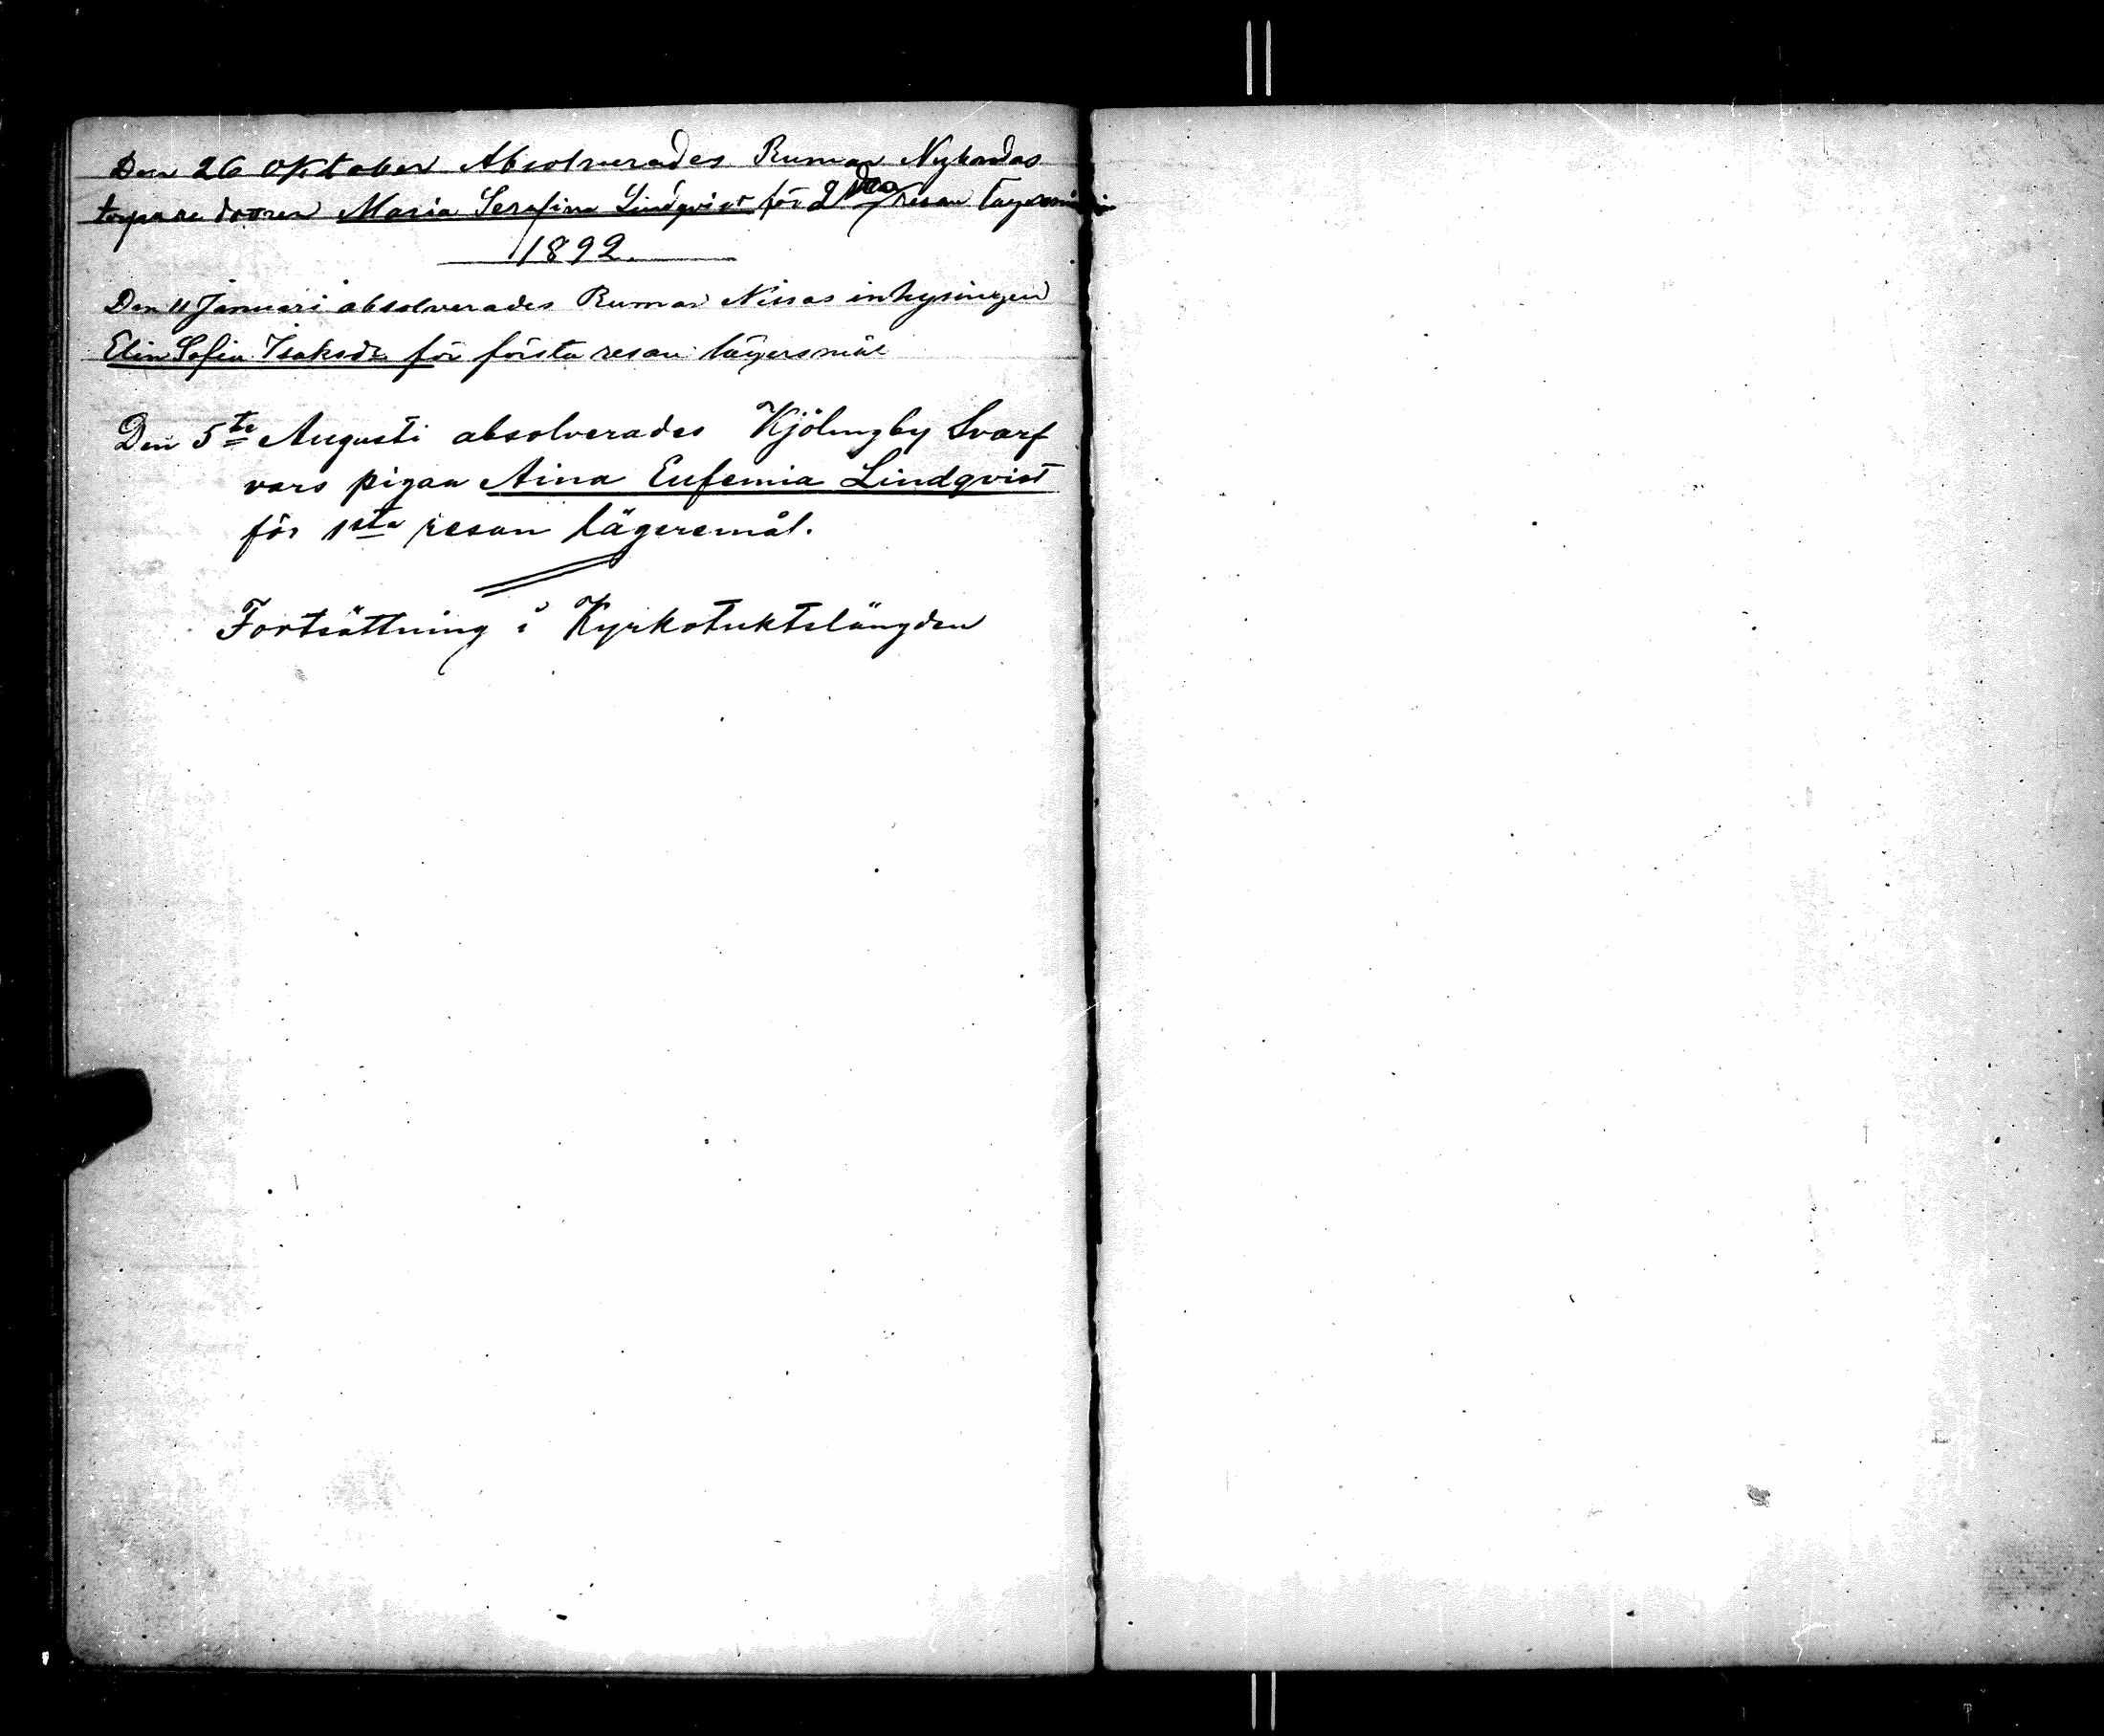 Den 26 Oktober Absolverades Rumar Nybondas
torpare dottren Maria Serafina Lindqvist för 2dra resan lägersmål
1892.
Den 11 Januari absolverades Rumar Nissas inhysingen
Elin Sofia Isaksdr för första resan lägersmål
Den 5te Augusti absolverades Kjölingby Svarf
vars pigan Aina Eufemia Lindqvist
för 1sta resan lägersmål.
Fortsättning i Kyrkotuktslängden